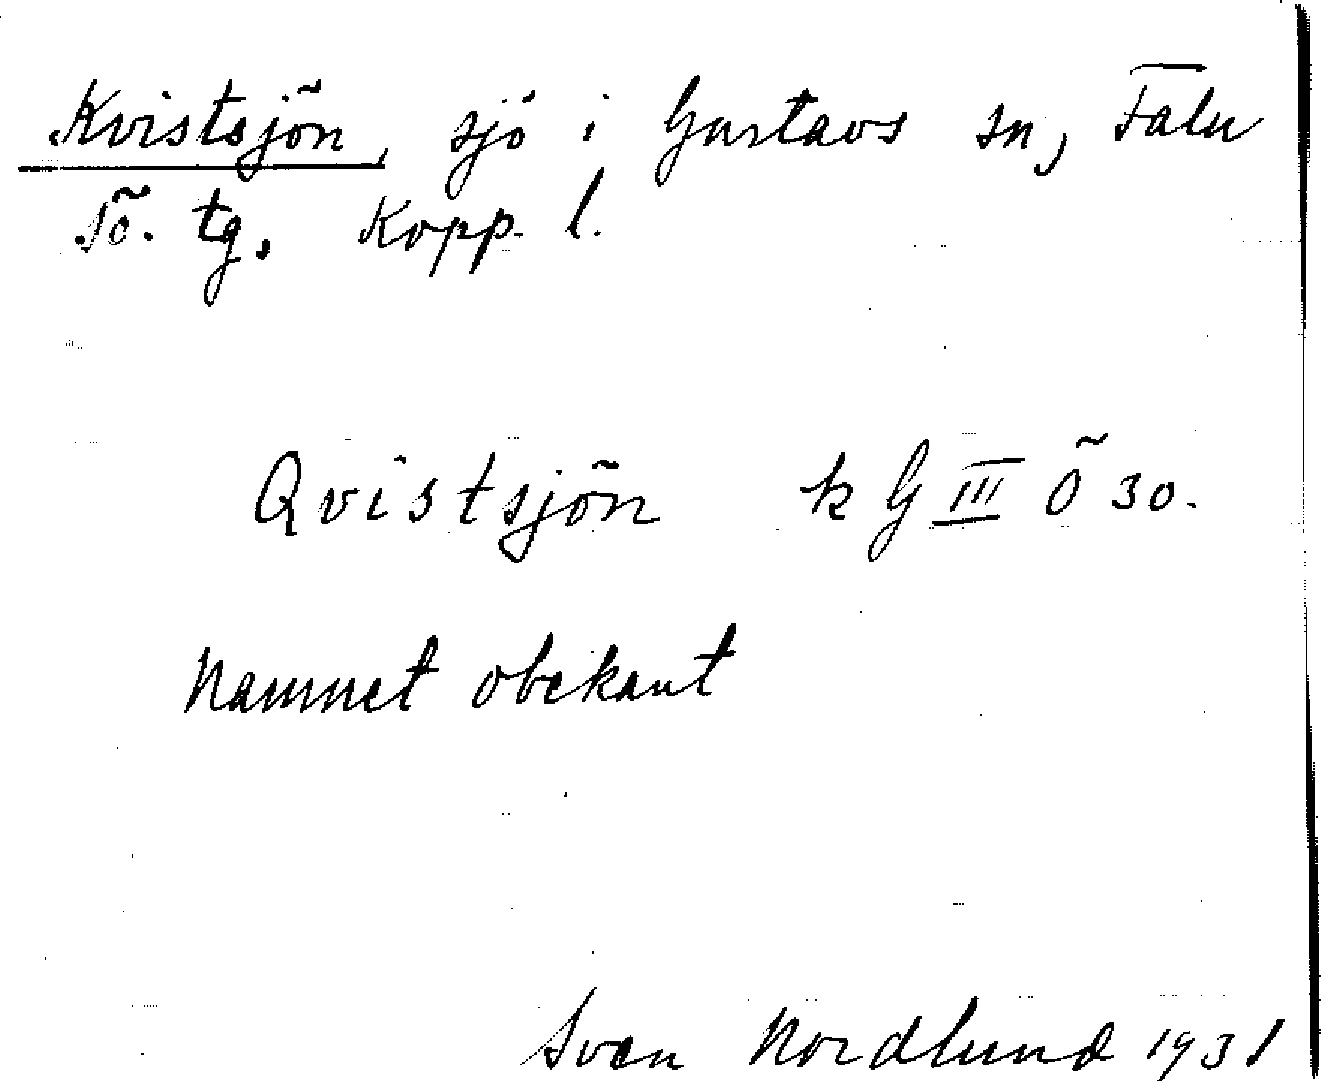 Kvistsjön, sjö i Gustavs sn, Falu
sö. tg. Kopp. l.
Qvistsjön k G III Ö 30.
Namnet obekant
Sven Nordlund 1931